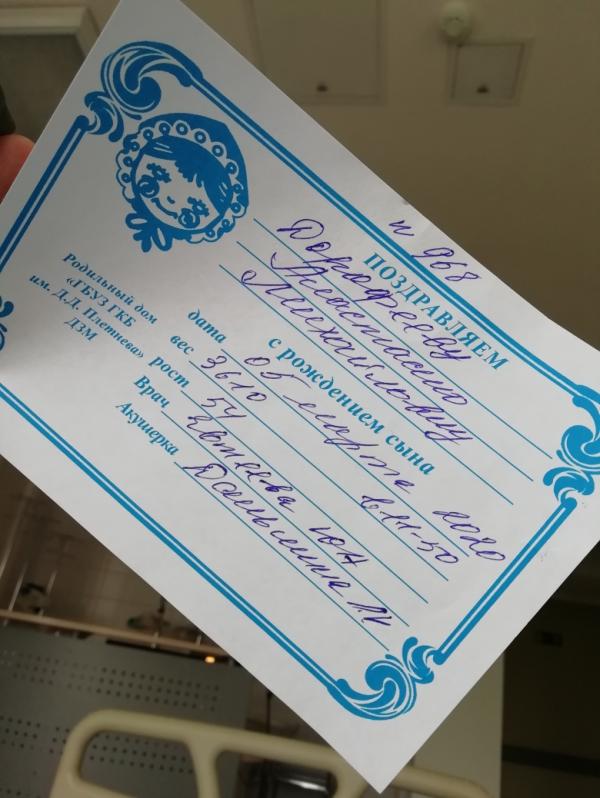 и 968
ПОЗДРАВЛЯЕМ
Дорофееву
Анастасию
Михайловну
с рождением сына
дата 05 марта 2020
вес 3610 в 11-50
рост 54
Врач Ю.Н
Акушерка
Родильный дом
«ГБУЗ ГКБ
им. Д.Д. Плетнева»
ДЗМ